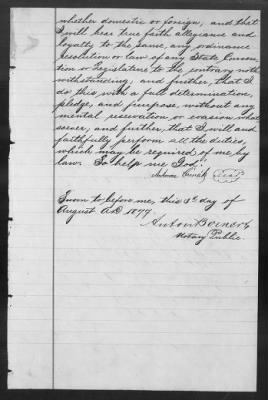 whether domestic or foreign, and that
I will bear true faith allegiance and
loyalty to the same, any ordinance
resolution or law of any State Conven
tion or Legislature to the contrary noth
withstanding, and further, that I
do this with a full determination,
pledge, and purpose, without any
mental reservation or evasion what
soever, and further, that I will and
faithfully perform all the duties,
which may be required of me, by
law. So help me God."
Seal
Sworn to before me, this 3d day of
August AD 1877
Anton
Notary Public.